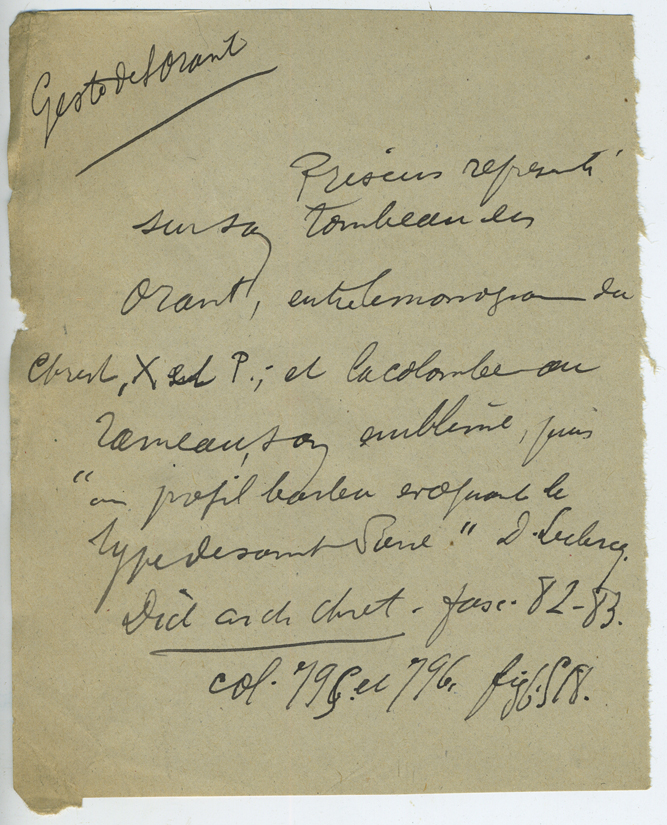 Geste de l'Orant
Priscus representé
sur son tombeau en
Orant, entre le monogramme du
Christ, X et P.; et la colombe au
rameau, son emblème, puis
"un profil barbu evoquant le
type de saint Paul." D. Leclercq.
Dict arch chret. fasc. 82-83.
col. 795 et 796. fig.